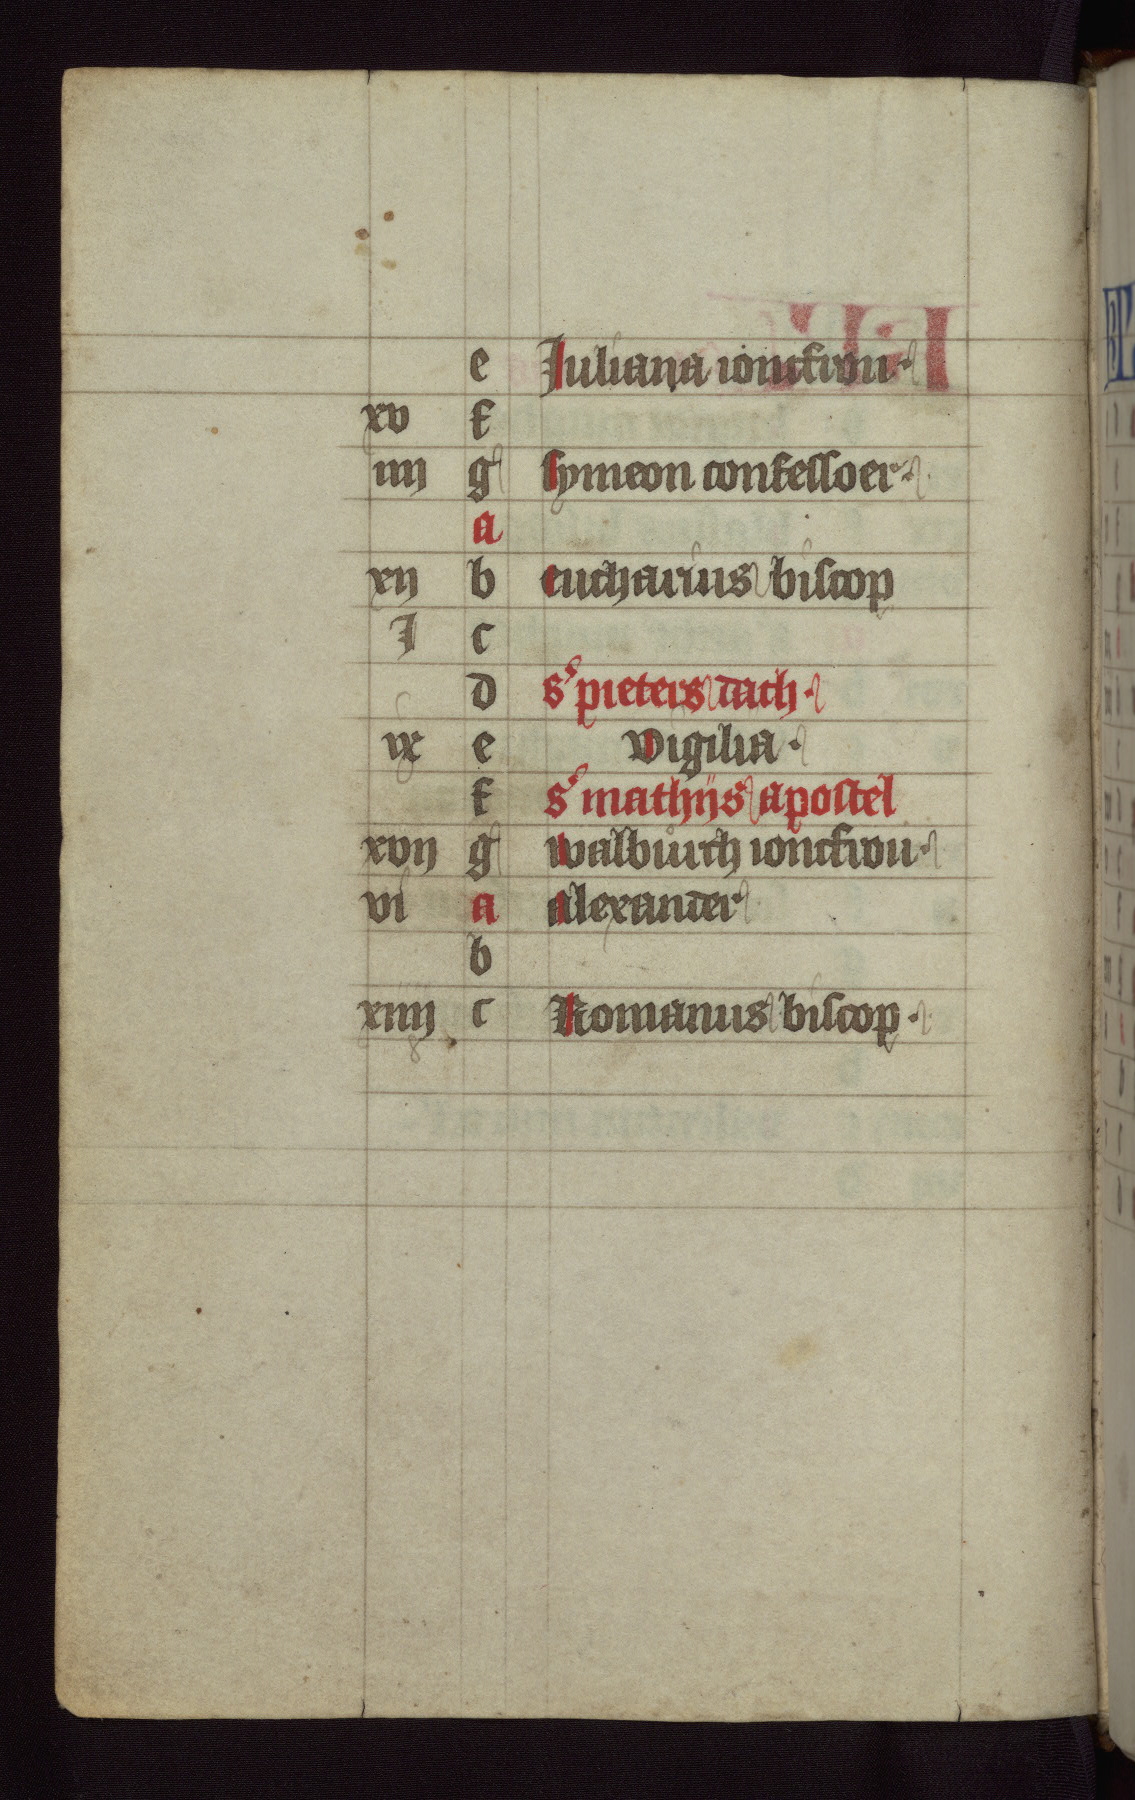 e Juliana ioncfrou·
xv f
iiij g symeon confessoer·
a
xij b eucharius biscop
I c
d s͛ pieters dach·
ix e vigilia·
f s͛ mathijs apostel
xvij g walburch ioncfrou·
vi a alexander
b
xiiij c Romanus biscop·